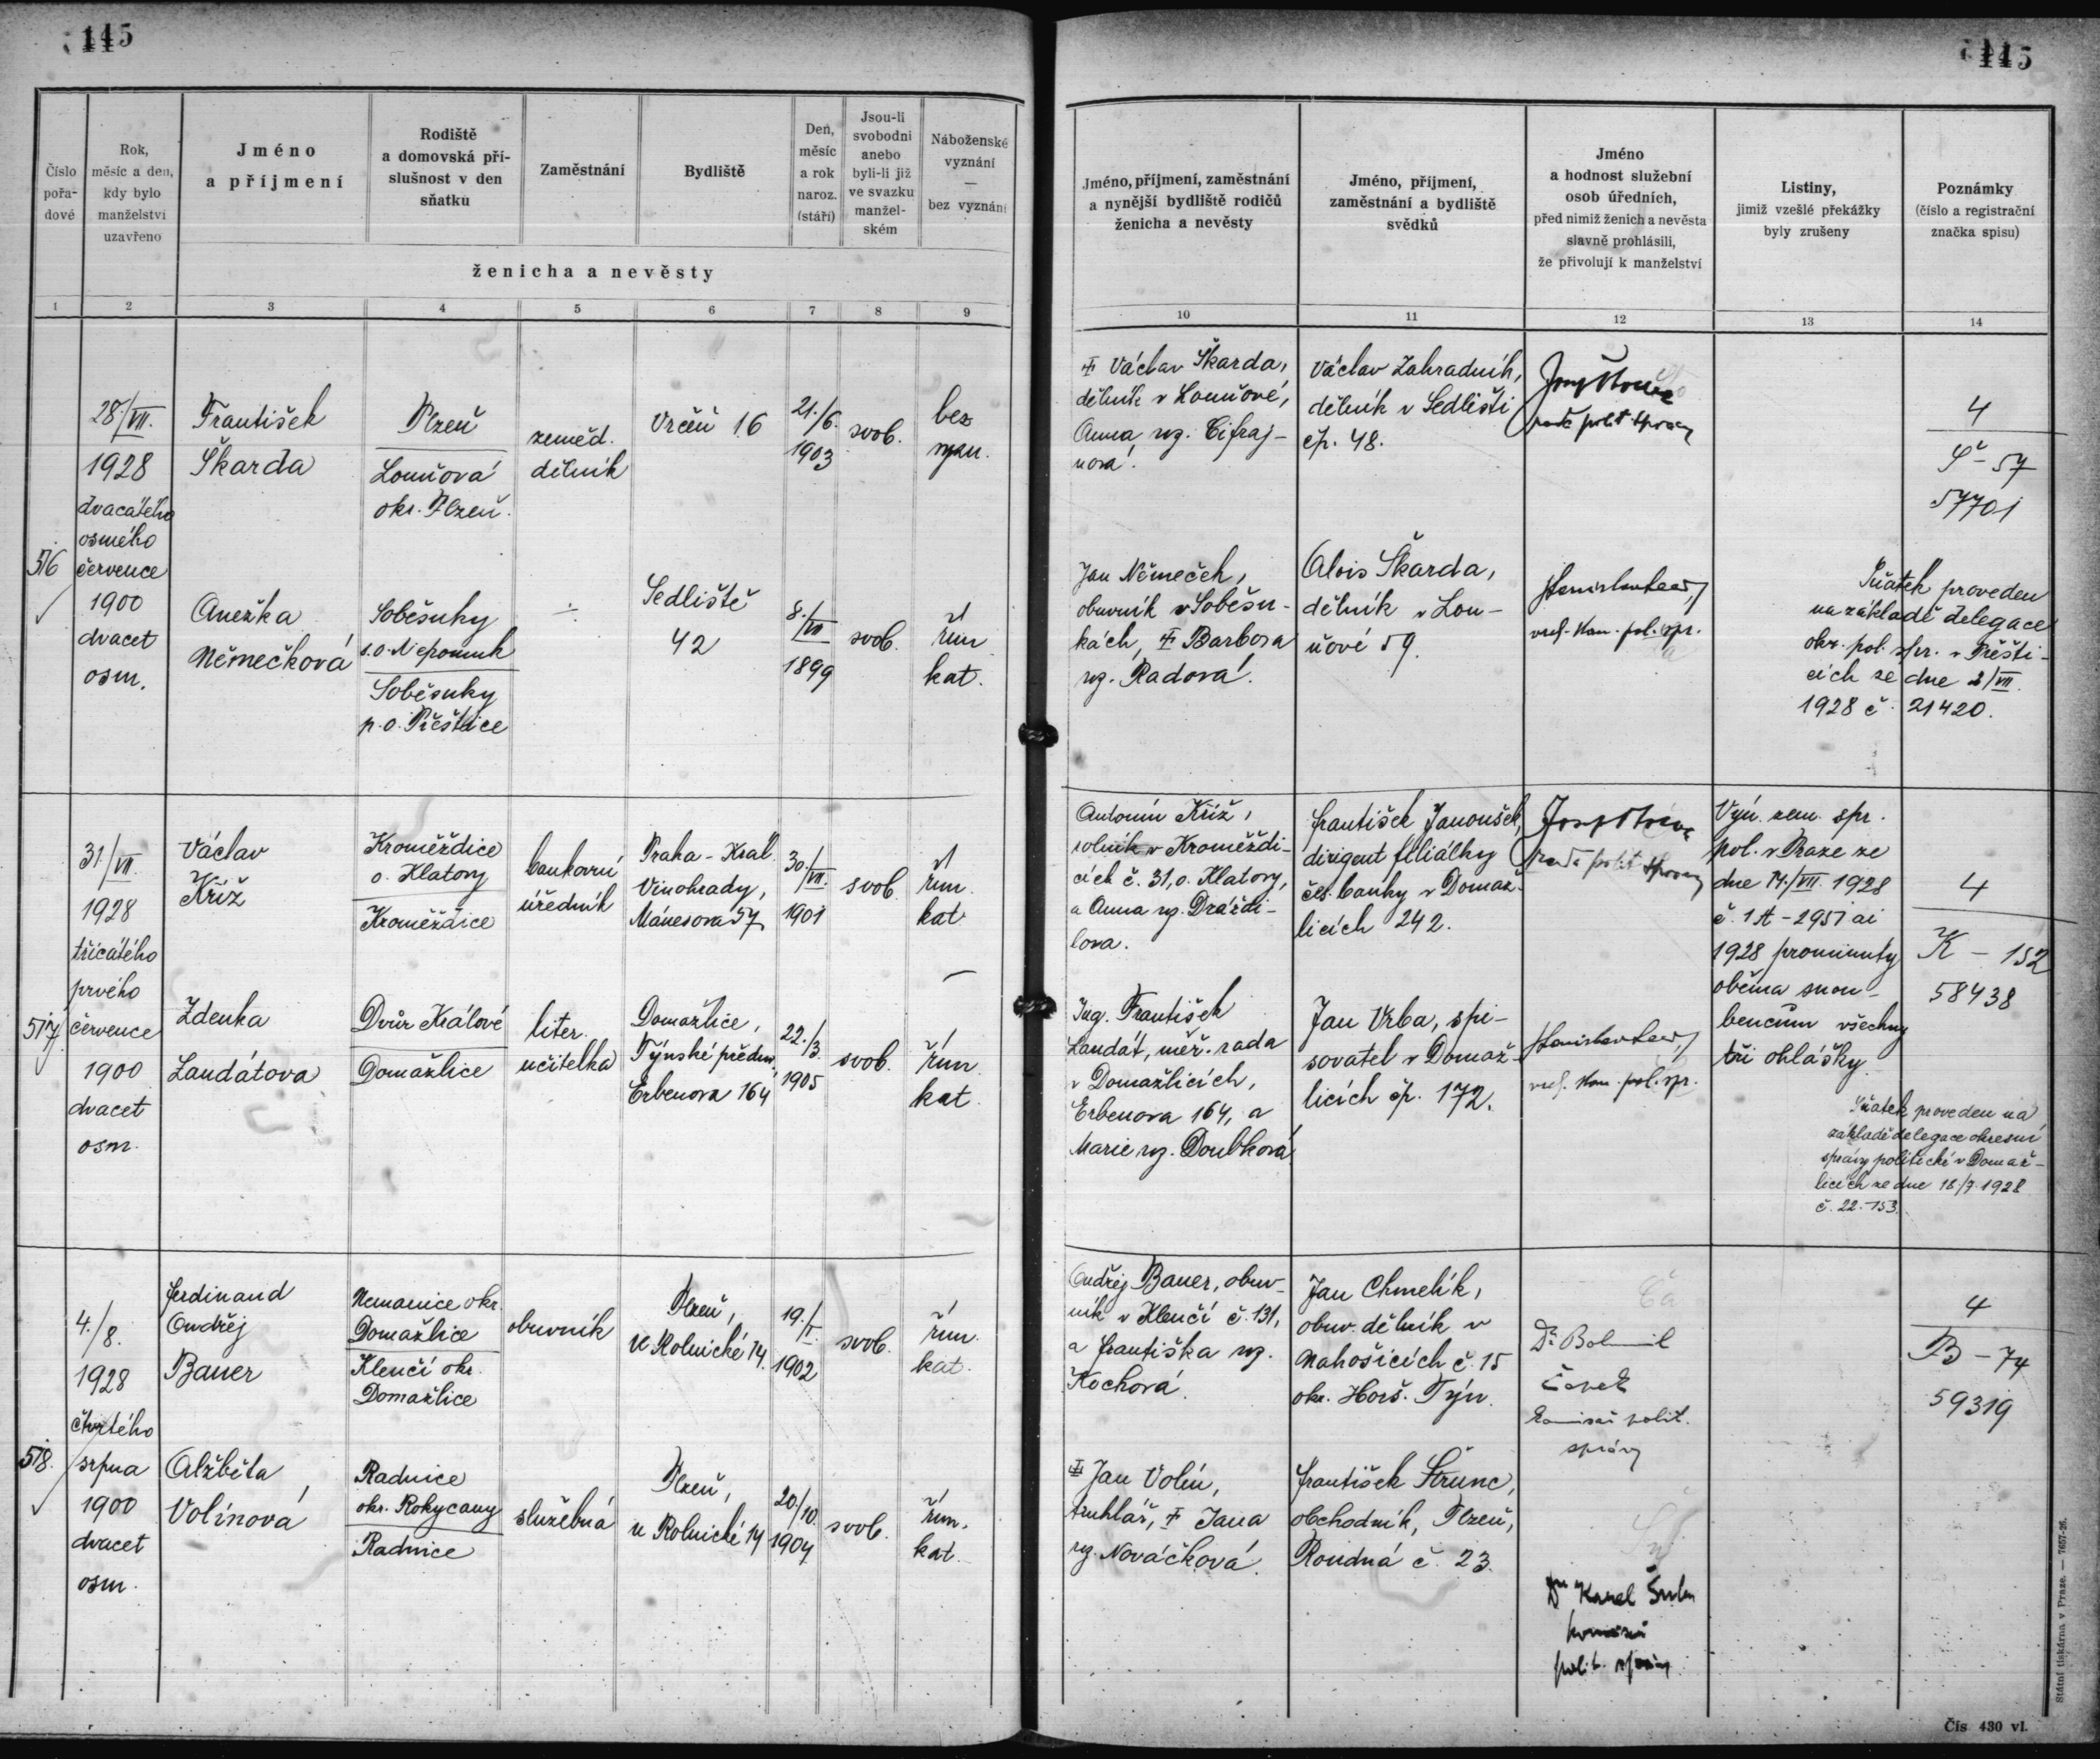 145
145
Číslo
pořa-
dové
Rok,
měsíc a den,
kdy bylo
manželství
uzavřeno
Jméno
a příjmení
Rodiště
a domovská pří-
slušnost v den
sňatku
Zaměstnání
Bydliště
Den,
měsíc
a rok
naroz.
(stáří)
Jsou-li
svobodni
anebo
byli-li již
ve svazku
manžel-
ském
Náboženské
vyznání
—
bez vyznání
ženicha a nevěsty
1 2 3 4 5 6 7 8 9
Jméno, příjmení, zaměstnání
a nynější bydliště rodičů
ženicha a nevěsty
Jméno, příjmení,
zaměstnání a bydliště
svědků
Jméno
a hodnost služební
osob úředních,
před nimiž ženich a nevěsta
slavně prohlásili,
že přivolují k manželství
Listiny,
jimiž vzešlé překážky
byly zrušeny
Poznámky
(číslo a registrační
značka spisu)
10 11 12 13 14
516
28./VII.
1928
dvacátého
osmého
července
1900
dvacet
osm.
František
Škarda
Plzeň
Louňová
okr. Plzeň.
zeměd.
dělník
Vrčeň 16
21./6.
1903
svob.
bez
vyzn.
Václav Škarda,
dělník v Louňové,
Anna roz. Cifraj-
nová.
Václav Zahradník,
dělník v Sedlišti
čp. 48.
rada polit. správy
4
Š - 57
57701
Anežka
Němečková
Soběsuky
s.o. Nepomuk
Soběsuky
p.o. Přeštice
÷
Sedliště
42
8./VII
1899
svob.
řím.
kat.
Jan Němeček,
obuvník v Soběsu-
kách, Barbora
roz. Radová.
Alois Škarda,
dělník v Lou-
ňové 59.
vrch. kom. pol. spr.
Sňatek proveden
na základě delegace
okr. pol. spr. v Přešti-
cích ze dne 2/VII.
1928 č. 21420.
517
31./VII.
1928
třicátého
prvého
července
1900
dvacet
osm.
Václav
Kříž
Kroměždice
o. Klatovy
Kroměždice
bankovní
úředník
Praha - Král.
Vinohrady,
Mánesova 57
30./VII.
1901
svob.
řím.
kat.
Antonín Kříž,
rolník v Kroměždi-
cích č. 31, o. Klatovy,
a Anna roz. Dráždi-
lova.
František Janoušek,
dirigent filiálky
čes. banky v Domaž-
licích 242.
rada polit. správy
Výn. zem. spr.
pol. v Praze ze
dne 14./VII. 1928
č. 1A - 2951 ai
1928 prominuty
oběma snou-
bencům všechny
tři ohlášky.
4
K - 152
58438
Zdenka
Landátova
Dvůr Králové
Domažlice
liter.
učitelka
Domažlice,
Týnské předm.,
Erbenova 164
22./3.
1905
svob.
řím.
kat.
Ing. František
Landát, měř. rada
v Domažlicích,
Erbenova 164, a
Marie roz. Doubková.
Jan Vrba, spi-
sovatel v Domaž-
licích čp. 172.
vrch. kom. pol. spr.
Sňatek proveden na
základě delegace okresní
správy politické v Domaž-
licích ze dne 18./7. 1928
č. 22.153.
518.
4./8.
1928
čtvrtého
srpna
1900
dvacet
osm.
Ferdinand
Ondřej
Bauer
Nemanice okr.
Domažlice
Klenčí okr.
Domažlice
obuvník
Plzeň,
U Rolnické 14.
19./I.
1902
svob.
řím.
kat.
Ondřej Bauer, obuv-
ník v Klenčí č. 131,
a Františka roz.
Kochová.
Jan Chmelík,
obuv. dělník v
Nahošicích č. 15
okr. Horš. Týn.
Dr Bohumil
Čapek
komisař polit.
správy
4
B - 74
59319
Alžběta
Volínová
Radnice
okr. Rokycany
Radnice
služebná
Plzeň,
u Rolnické 14
20./10.
1904
svob.
řím.
kat.
Jan Volín,
truhlář, Jana
roz. Nováčková.
František Štrunc,
obchodník, Plzeň,
Roudná č. 23.
Dr Karel
komisař
polit. správy
Státní tiskárna v Praze. — 7657-26.
Čís. 430 vl.